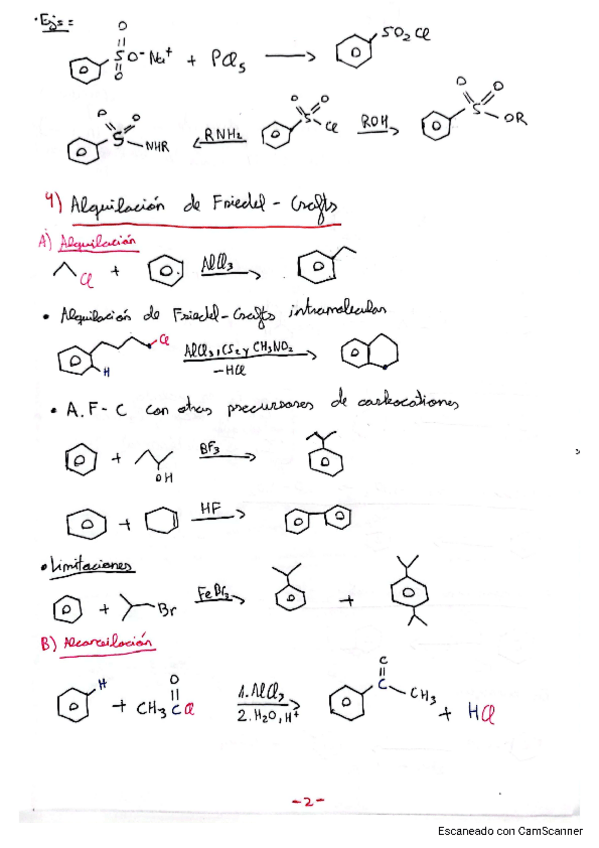 ·Ejs:
O
O
SO2Cl
S O- Na+ + PCl5
O
O O O O O O
S S S
NHR RNH2 Cl ROH OR
4) Alquilación de Friedel-Crafts
A) Alquilación
Cl + AlCl3
• Alquilación de Friedel-Crafts intramolecular
Cl
AlCl3, CS2 y CH3NO2
H -HCl
• A.F-C con otros precursores de carbocationes
+ BF3
OH
+ HF
• Limitaciones
+ Br FeBr3 +
B) Alcarcilación
H O C
+ CH3CCl 1. AlCl3 C CH3
2. H2O, H+ + HCl
-2-
Escaneado con CamScanner